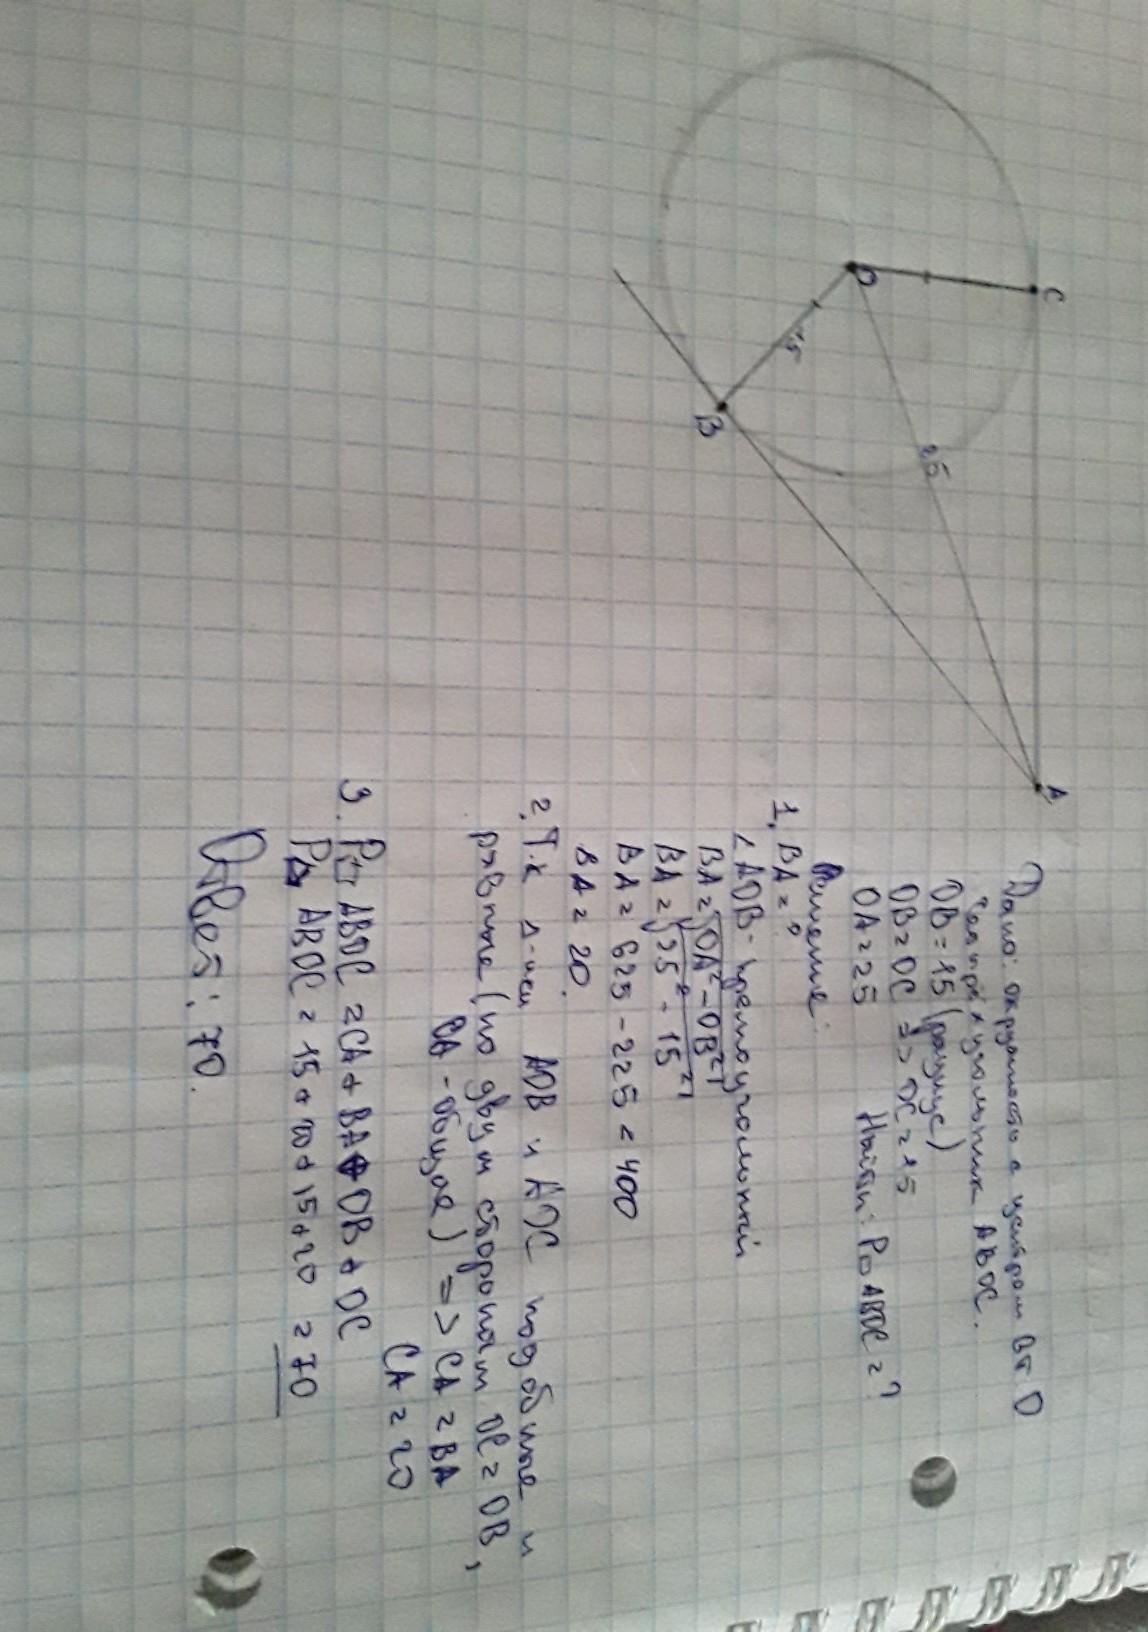 C
A
O
B
15
25
Дано: окружность с центром в т О
четырёхугольник ABOC.
OB = 15 (радиус)
OB = OC => OC = 15
OA = 25 Найти: P ABOC = ?
Решение:
1. BA = ?
AOB - прямоугольный
BA = √OA² - OB²
BA = √25² - 15²
BA = 625 - 225 = 400
BA = 20.
2. Т.к Δ-ики AOB и AOC подобные и
равные (по двум сторонам OC = OB,
OA - общая) => CA = BA
CA = 20
3. P ABOC = CA + BA + OB + OC
P ABOC = 15 + 20 + 15 + 20 = 70
Ответ: 70.